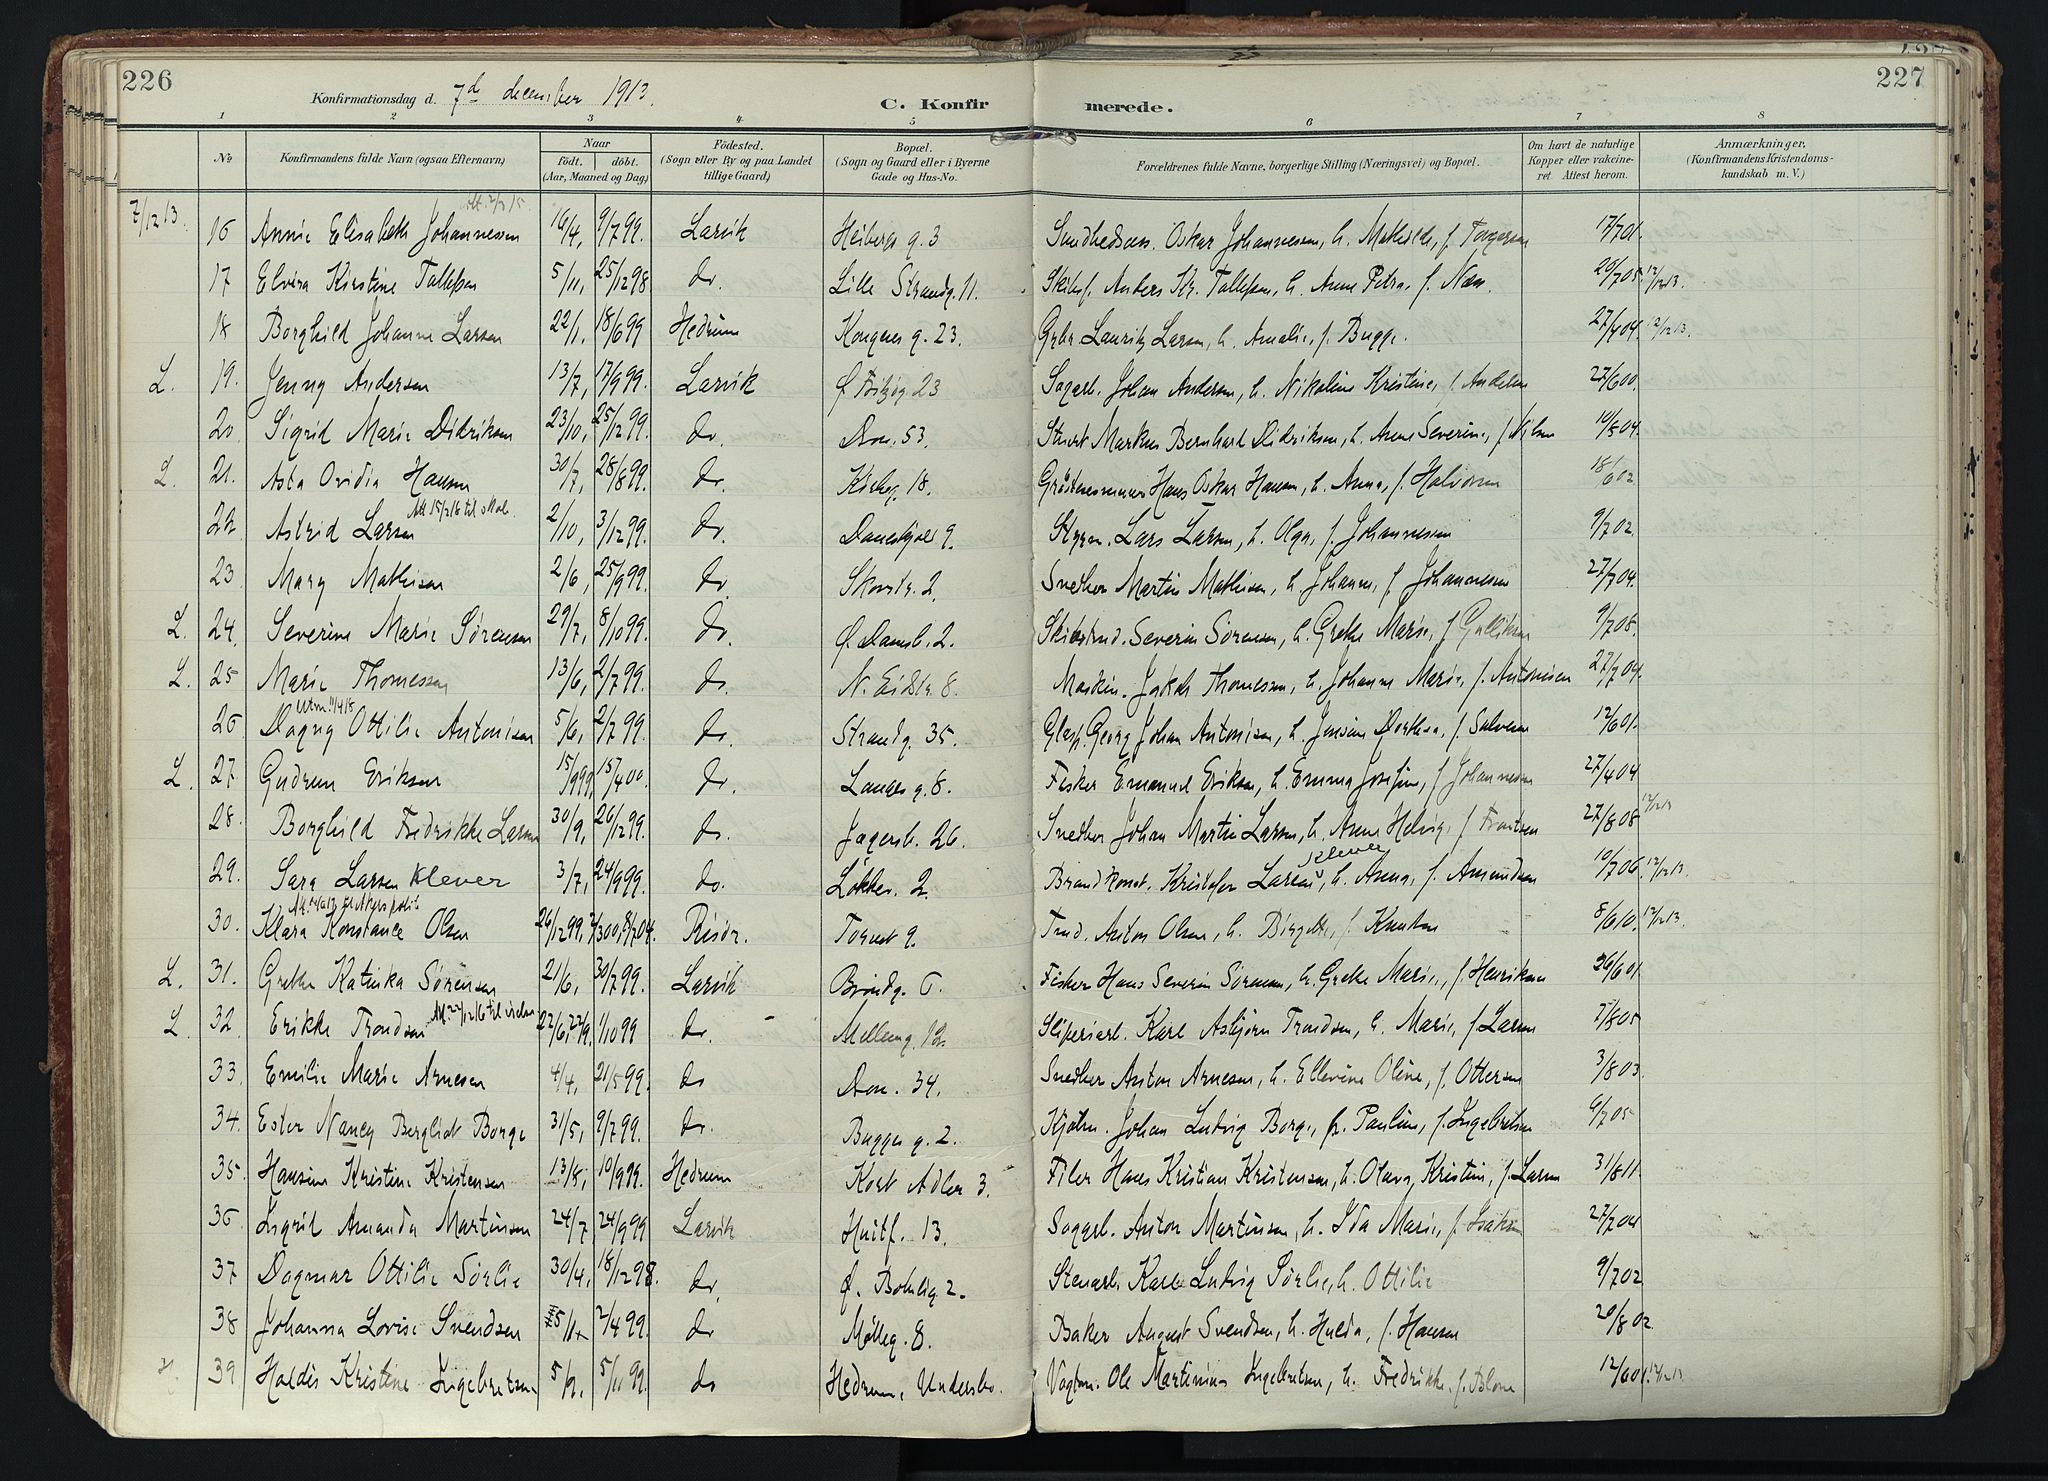 226
Konfirmationsdag d. 7d december 1913.
C. Konfirmerede.
227
1 2 3 4 5 6 7 8
No. Konfirmandens fulde Navn (ogsaa Efternavn) Naar født. døbt. (Aar, Maaned og Dag) Fødested. (Sogn eller By og paa Landet tillige Gaard) Bopæl. (Sogn og Gaard eller i Byerne Gade og Hus-No. Forældrenes fulde Navne, borgerlige Stilling (Næringsvei) og Bopæl. Om havt de naturlige Kopper eller vakcineret. Attest herom. Anmærkninger. (Konfirmandens Kristendomskundskab m. V.)
7/12 13.
16 Annie Elisabeth Johannessen 16/4, 9/7 99. Larvik Heibergs g. 3 Oskar Johannessen, h. Mathilde, f. 17/7 01.
17 Elvira Kirstine Tollefsen 5/11, 25/12 98 do. Lille Strandg. 11. Anders Kr. Tollefsen, h. Anne Petra, f. Næs. 20/7 05. 12/12 13.
18 Borghild Johanne Larsen 22/1, 18/6 99 Hedrum Konges g. 23. Lauritz Larsen, h. Amalie, f. Bugge. 27/4 04. 12/12 13.
L. 19. Jenny Andersen 13/7, 17/9 99. Larvik 23 Sagarb. Johan Andersen, h. Nikoline Kristine, f. Andersen 27/6 00.
20. Sigrid Marie Didriksen 23/10, 25/12 99. do. Dron. 53. Stuert Markus Bernhard Didriksen, h. Anne Severine, f. Nilsen 10/8 04.
L. 21. Asta Ovidia Hansen 30/7, 28/8 99. do. Kirkeg. 18. Hans Oskar Hansen, h. Anna, f. Halvorsen 18/6 02
Att. 15/2 16 til skole.
22. Astrid Larsen 2/10, 3/12 99. do. 9. Styrm. Lars Larsen, h. Olga, f. Johannessen 9/7 02.
23. Mary Mathisen 2/6, 25/9 99. do. 2. Snedker Martin Mathisen, h. Johanne, f. Johannessen 27/7 04.
L. 24. Severine Marie Sørensen 29/7, 8/10 99. do. Ø. Damsb. 2. Severin Sørensen, h. Grethe Marie, f. Gulliksen 9/7 08.
L. 25 Marie Thomessen 13/6, 2/7 99. do. N. Eidstr. 8. Maskin. Jakob Thomessen, h. Johanne Marie, f. Antonisen 27/7 04.
Utm. 11/4 18
26 Dagny Ottilie Antonisen 5/6, 2/7 99. do. Strandg. 35. Georg Johan Antonisen, h. Jensine Dorthea, f. Salvesen 12/6 01.
L. 27 Gudrun Eriksen 15/9 99, 15/4 00. do. Langes g. 8. Fisker Emanuel Eriksen, h. Emma Josefine, f. Johannessen 27/4 04
28. Borghild Fredrikke Larsen 30/9, 26/12 99. do. Jegersb. 26. Snedker Johan Martin Larsen, h. Anne Helvig, f. 27/8 08 12/12 13
29. Sara Larsen Klever 3/7, 24/9 99. do. Løkker. 2. Brandkonst. Kristofer Larsen Klever, h. Anna, f. Amundsen 10/7 06. 12/12 13.
30. Klara Konstance Olsen 26/12 99, 2/3 00, 8/7 04. Risør. Torvet 9. Anton Olsen, h. Birgitte, f. Knudsen 8/6 10. 12/12 13.
L. 31. Grethe Katinka Sørensen 21/6, 30/7 99. Larvik Brøndg. 6. Fisker Hans Severin Sørensen, h. Grethe Marie, f. Henriksen 26/6 01
L. 32. Erikke Trondsen 22/6, 22/9, 1/10 99 do. Mellemg. 12. Sliperiarb. Karl Asbjørn Trondsen, h. Marie, f. Larsen 7/8 05
33. Emilie Marie Arnesen 4/4, 21/5 99. do Dron. 34. Snedker Anton Arnesen, h. Ellevine Oline, f. Ottersen 3/8 03.
34. Ester Nancy Bergliot Borge 31/5, 9/7 99. do. Bugges g. 2. Kjøbm. Johan Ludvig Borge, fr. Pauline, f. Ingebretsen 9/7 05
35. Hansine Kristine Kristensen 13/8, 10/9 99. Hedrum Kort Adler 3. Filer Hans Kristian Kristensen, h. Olava Kristine, f. Larsen 31/8 11.
36. Ingrid Amanda Martinsen 24/7, 24/9 99 Larvik Huitf. 13. Saggarb. Anton Martinsen, h. Ida Marie, f. Isaksen 27/7 04
37 Dagmar Ottilie Sørlie 30/4, 18/12 98. do. Ø. Bøkelig 2. Stenarb. Karl Ludvig Sørlie, h. Ottilie 9/7 02
38 Johanna Lovise Svendsen 2/4 99. do Mølleg. 8. Baker August Svendsen, h. Hulda, f. Hansen 20/8 02.
39 Haldis Kristine Ingebretsen 5/9, 5/11 99. do Hedrum, Undersbo. Ole Martinius Ingebretsen, h. Fredrikke, f. 12/6 01.